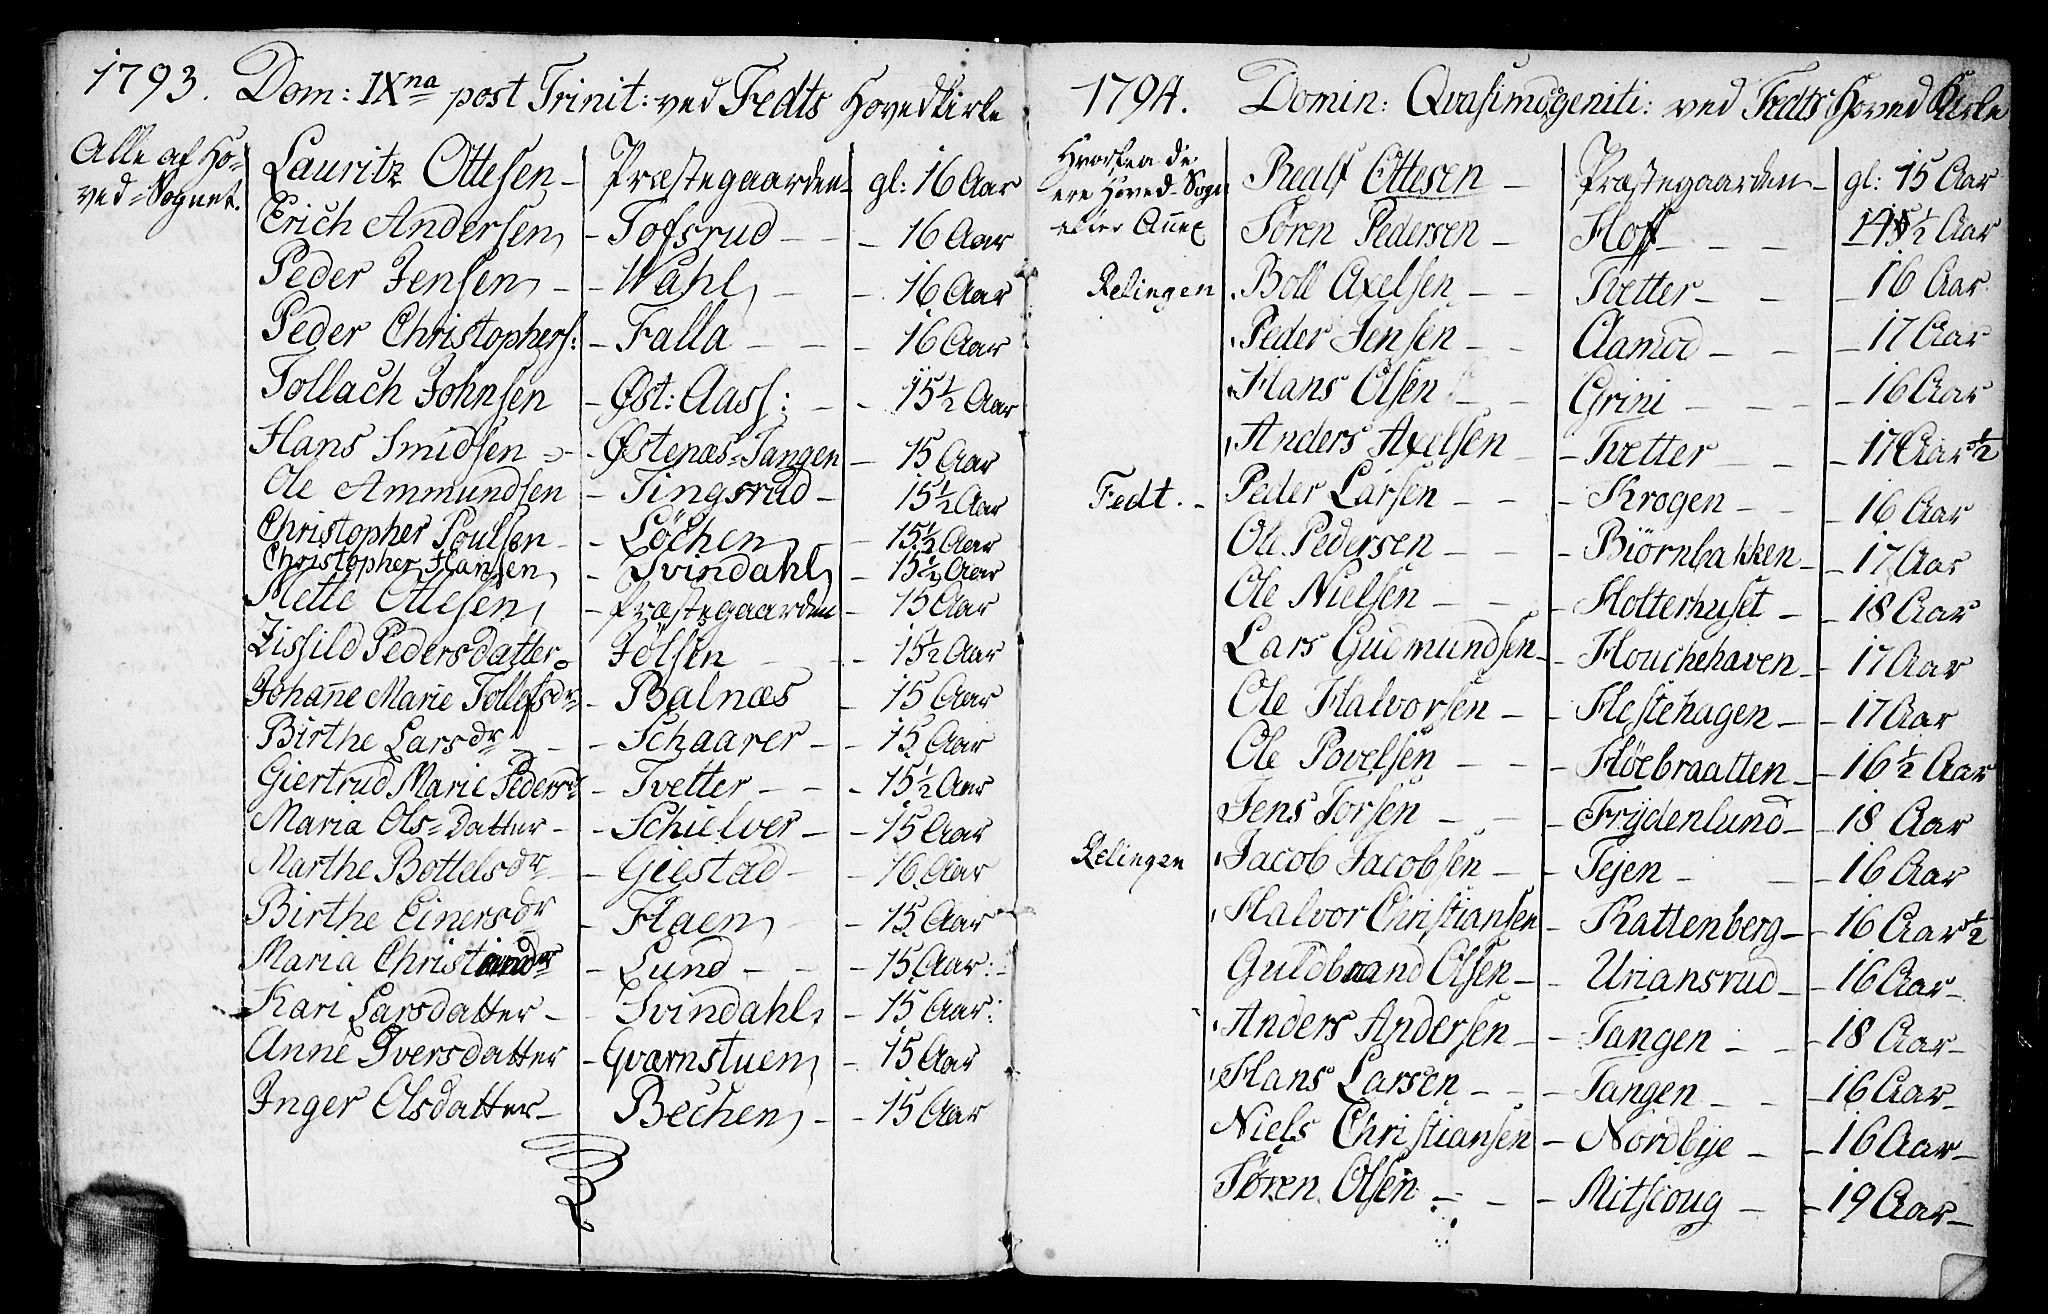 1793. Dom: IXna post Trinit: ved Fedts Hovedkirke
Alle af Ho=
ved=Sognet.
Lauritz Ottesen - Præstegaarden - gl: 16 Aar
Erich Andersen - Tofsrud - - - 16 Aar
Peder Jensen - - Wahl - - 16 Aar
Peder Christophers: - Falla - - - 16 Aar
Tollach Johnsen - Øst: Aass: - - 15 1/2 Aar
Hans Smidsen - - Østenæs=Tangen - 15 Aar
Ole Ammundsen - Tingsrud - 15 1/2 Aar
Christopher Poulsen - - Löchen - 15 1/2 Aar
Christopher Hansen - Svindahl - 15 1/2 Aar
Mette Ottesen - Præstegaarden - 15 Aar
Zissild Pedersdatter - Jölsen - - 15 1/2 Aar
Johañe Marie Tollefsdr - Balnæs - 15 Aar
Birthe Larsdr - - Schaarer - - 15 Aar
Giertrud Marie Pedersdr - Tvetter - - - 15 1/2 Aar
Maria Ols=datter - - Schielver - - 15 Aar
Marthe Bottelsdr - Giestad - - 16 Aar
Birthe Einersdr - Flaen - 15 Aar
Maria - Lund - - - 15 Aar: -
Kari Larsdatter - - Svindahl - 15 Aar:
Anne Iversdatter - Qværnstuen - 15 Aar
Inger Olsdatter - Bechen - - 15 Aar
1794. Domin: Qvasimogeniti: ved Fedts Hoved Kirke
Hvorfra de
ere Hoved=Sogn
eller Añex
Realf Ottesen - Præstegaarden - gl: 15 Aar
Søren Pedersen - Hoff - - - 1/2 Aar
Relingen Boll Axelsen - - Tvetter - - - 16 Aar
Peder Jensen - - Aamod - - - 17 Aar
Hans Olsen - - Grini - - - - 16 Aar
Anders Axelsen - - Tvetter - - - 17 Aar 1/2
Fedt. - Peder Larsen - - - Krogen - - - 16 Aar
Ole Pedersen - - - Biörnbakken - - 17 Aar
Ole Nielsen - - - Holterhuset - - 18 Aar
Lars Gudmundsen - - Houchehaven - - 17 Aar
Ole Halvorsen - - Hestehagen - - 17 Aar
Ole Povelsen - - - Höebraatten - - 16 1/2 Aar
Jens Torsen - - - Frÿdenlund - - 18 Aar
Relingen Jacob Jacobsen - - Tejen - - - 16 Aar
Halvor Christiansen - Kattenberg - - 16 Aar 1/2
Guldbrand Olsen - - Uriansrud - - 16 Aar -
Anders Andersen - - Tangen - - - 18 Aar -
Hans Larsen - - - Tangen - - - 16 Aar -
Niels Christiansen - Nordbÿe - - 16 Aar -
Søren Olsen - - - Mitscoug - - 19 Aar -